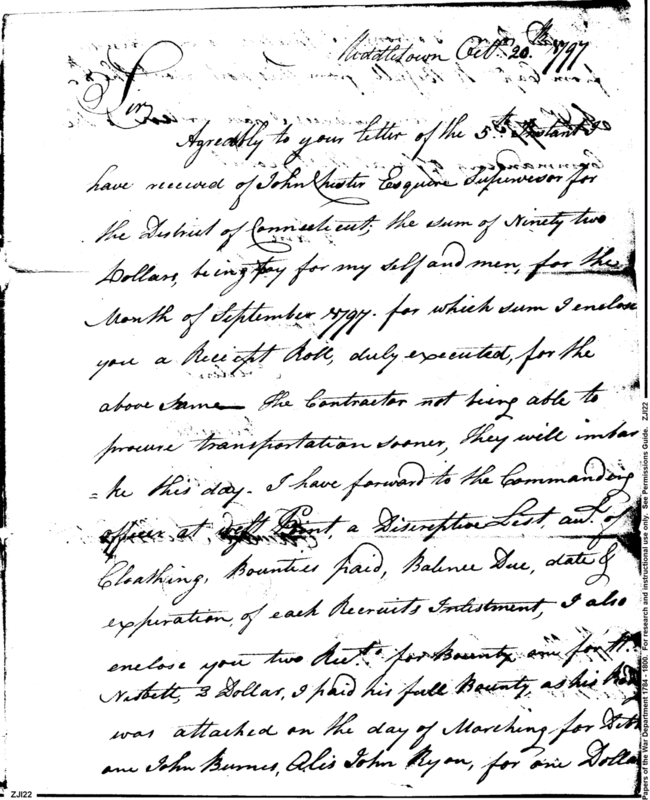 Middletown Octr. 20th 1797
Sir,
Agreeably to your letter of the 5th Instant I
have received of John Chester Esquire Supervisor for
the District of Connecticut; the sum of Ninety two
Dollars, being pay for my self and men, for the
Month of September 1797. for which sum I enclose
you a Receipt Roll, duly executed, for the
above same The Contractor not being able to
procure transportation sooner, They will imbar
=ke this day - I have forward to the Commanding
officer at West Point, a Discreptive List, aut. of
Cloathing, Bounties paid, Balence Due, date &
expiration of each Recruits Inlistment, I also
enclose you two Rects. for Bounty one for
Nesbett, 3 Dollar, I paid his full Bounty, as his
was attached on the day of Marching for Debt
one John Burnes, Alis John Ryon, for one Dollar
ZJI22
Papers of the War Department 1784 - 1800. For research and instructional use only. See Permissions Guide. ZJI22